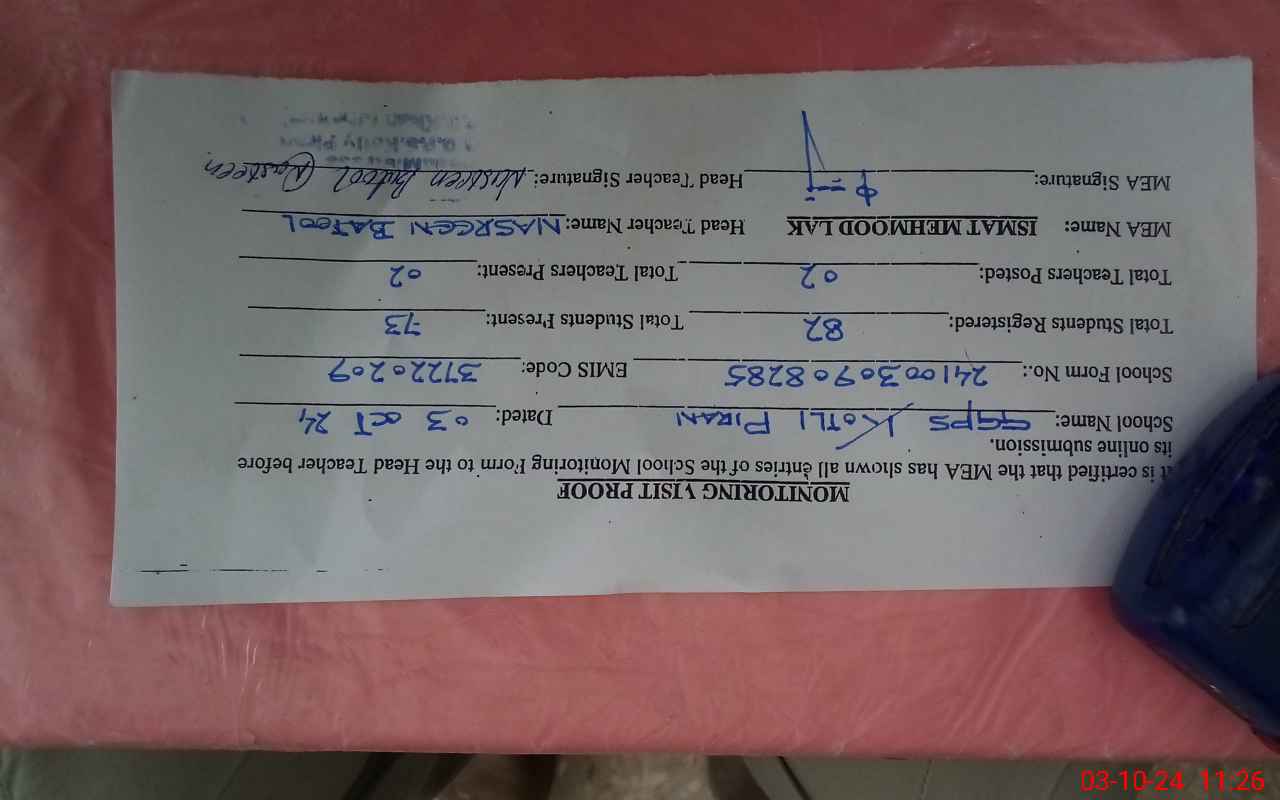 MONITORING VISIT PROOF
It is certified that the MEA has shown all entries of the School Monitoring Form to the Head Teacher before
its online submission.
School Name: GGPS KOTLI PIRAN Dated: 03 OCT 24
School Form No.: 2410030908285 EMIS Code: 37220209
Total Students Registered: 82 Total Students Present: 73
Total Teachers Posted: 02 Total Teachers Present: 02
MEA Name: ISMAT MEHMOOD LAK Head Teacher Name: NASREEN BATOOL
MEA Signature: Head Teacher Signature: Nasreen Batool
03-10-24 11:26